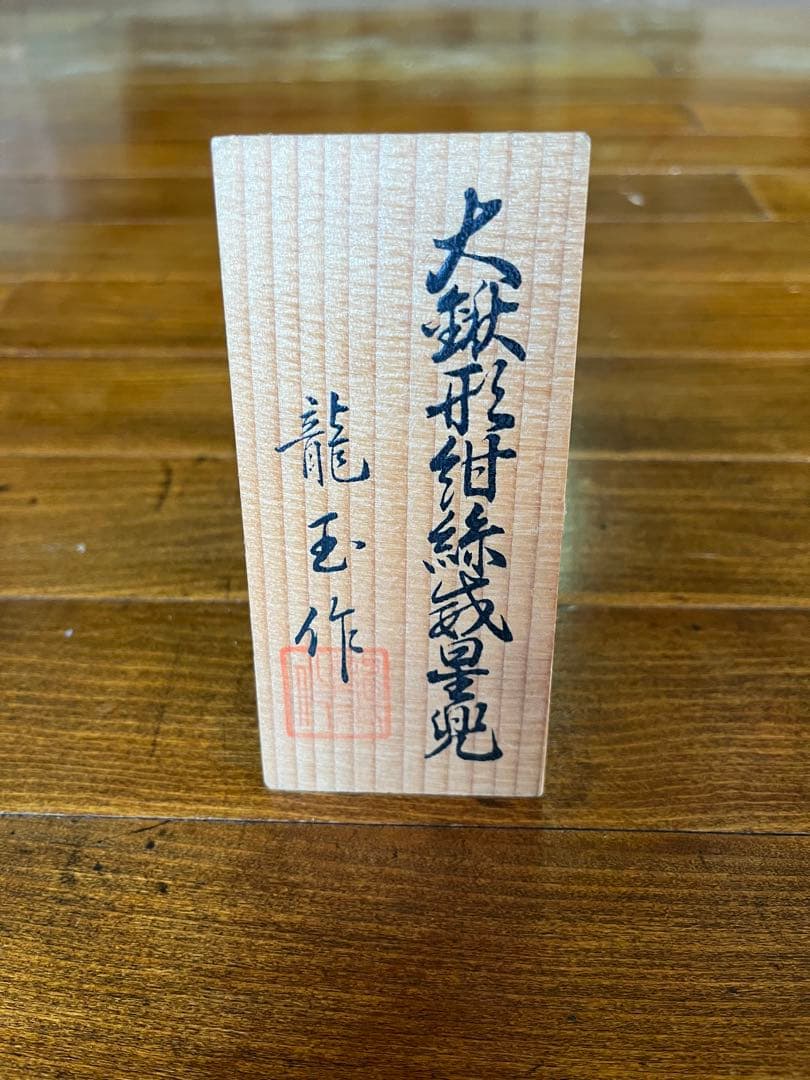 大鍬形紺絲威星兜
龍玉作